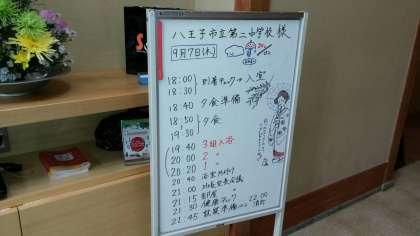 八王子市立第二中学校 様
9月7日(木)
18:00 到着チェック→入室
18:30
18:40 夕食準備
18:50 夕食
19:30
19:40 3組入浴
20:00 2 〃
20:20 1 〃
20:40
21:00
21:15 〃
21:30 健康チェック 22:00
21:45 就寝準備 消灯